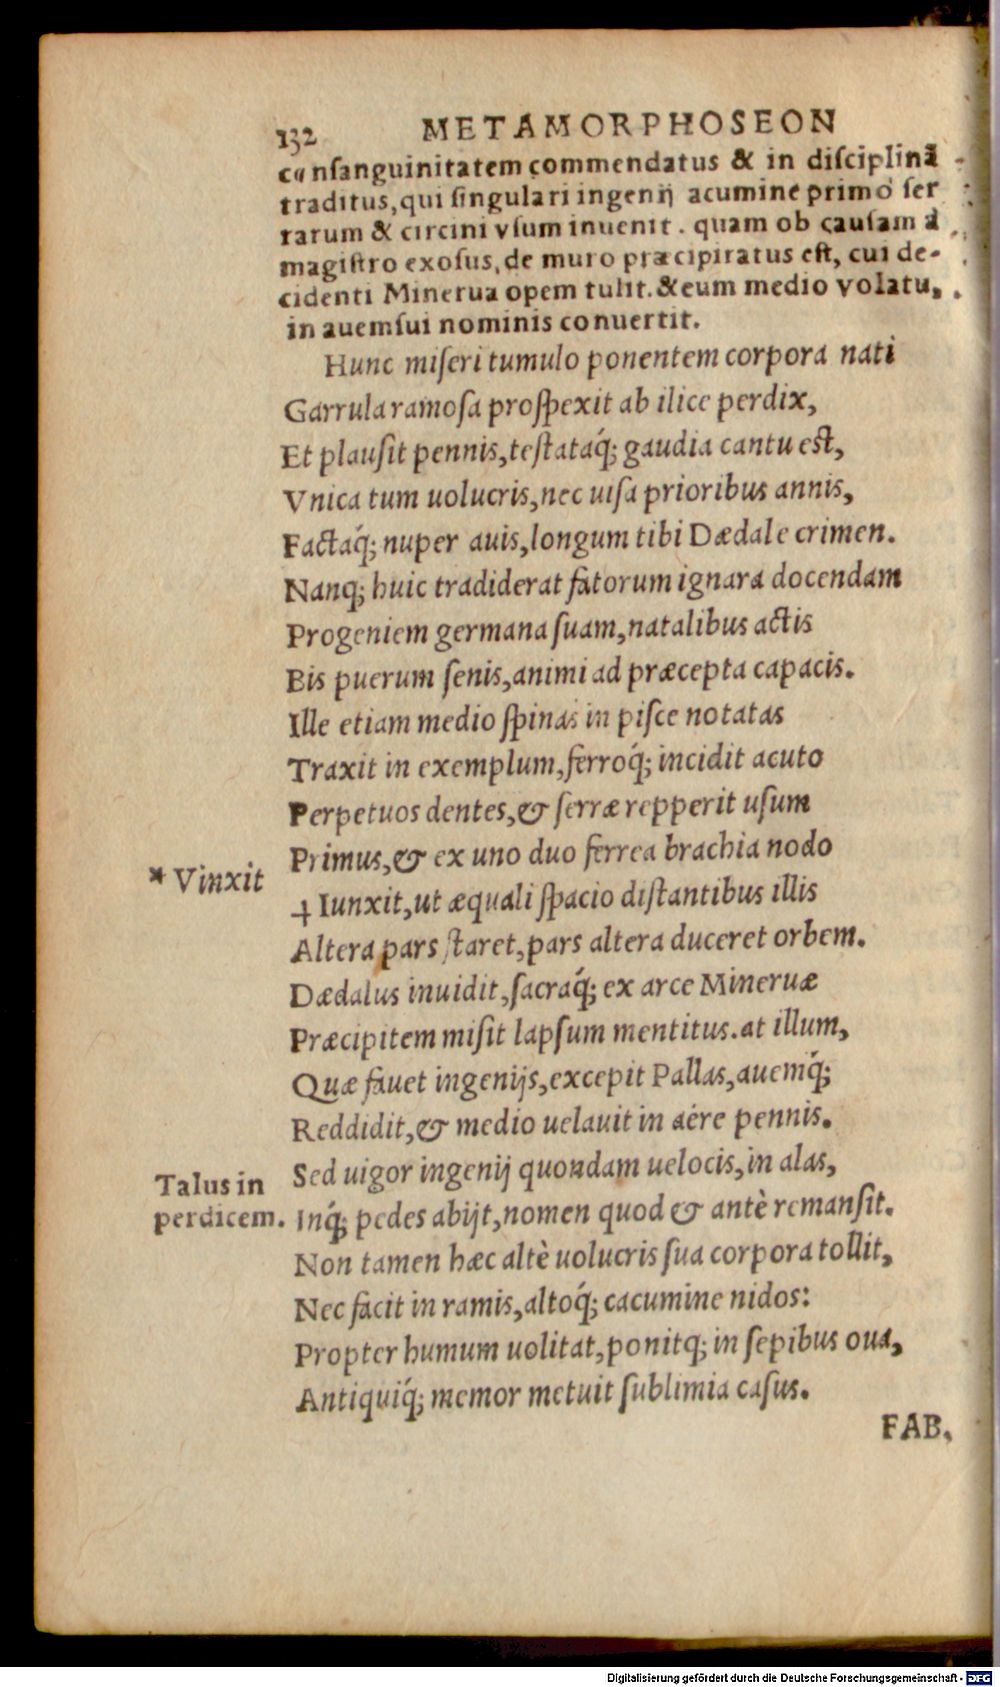 132 METAMORPHOSEON
cōnſanguinitatem commendatus & in diſciplinā
traditus, qui ſingulari ingenij acumine primo ſer
rarum & circini vſum inuenit. quam ob cauſam à
magiſtro exoſus, de muro præcipitatus eſt, cui de-
cidenti Minerua opem tulit. & eum medio volatu,
in auem ſui nominis conuertit.
Hunc miſeri tumulo ponentem corpora nati
Garrula ramoſa proſpexit ab ilice perdix,
Et plauſit pennis, teſtataq́; gaudia cantu eſt,
Vnica tum uolucris, nec uiſa prioribus annis,
Factaq́; nuper auis, longum tibi Dædale crimen.
Nanq; huic tradiderat fatorum ignara docendam
Progeniem germana ſuam, natalibus actis
Bis puerum ſenis, animi ad præcepta capacis.
Ille etiam medio ſpinas in piſce notatas
Traxit in exemplum, ferroq́; incidit acuto
Perpetuos dentes, & ſerræ repperit uſum
Primus, & ex uno duo ferrea brachia nodo
* Vinxit
Iunxit, ut æquali ſpacio diſtantibus illis
Altera pars ſtaret, pars altera duceret orbem.
Dædalus inuidit, ſacraq́; ex arce Mineruæ
Præcipitem miſit lapſum mentitus. at illum,
Quæ fauet ingenijs, excepit Pallas, auemq́;
Reddidit, & medio uelauit in aëre pennis.
Talus in
perdicem.
Sed uigor ingenij quondam uelocis, in alas,
Inq́; pedes abijt, nomen quod & antè remanſit.
Non tamen hæc altè uolucris ſua corpora tollit,
Nec facit in ramis, altoq́; cacumine nidos:
Propter humum uolitat, ponitq; in ſepibus oua,
Antiquiq́; memor metuit ſublimia caſus.
FAB.
Digitalisierung gefördert durch die Deutsche Forschungsgemeinschaft - DFG